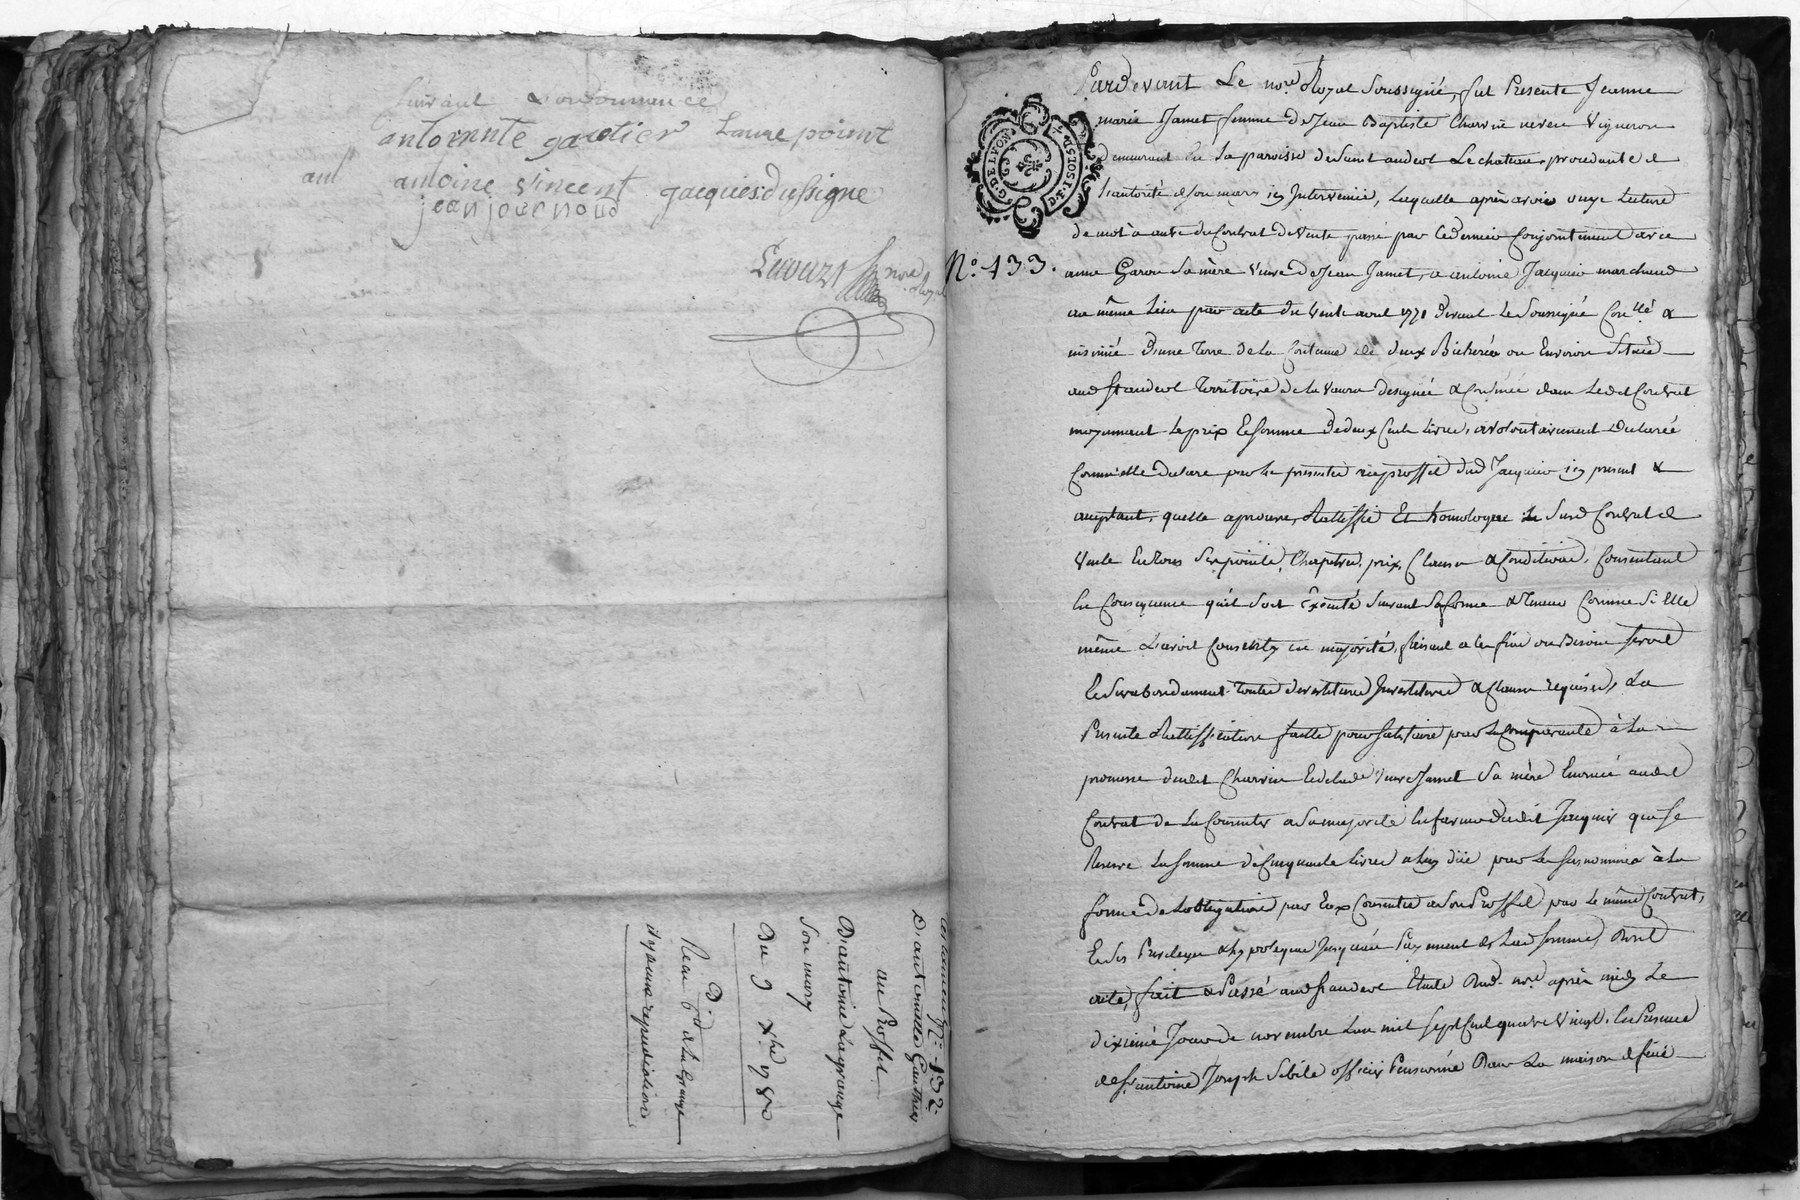 suivant L'ordonnance
antoinnte gautier Laurepoient
ant antoine vincent jacques dussigne
jean journoud
Lavurs nore Royal
testament N° 132
D'antoinette Gauthier
au Proffit
D'antoine Lagrange
Son mary
Du 9 xbre 1780
Reau Cd a LaGrange
il y a une repudiation
G. DE LYON
D. F. 1 SOL 5 D
N° 133.
Pardevant Le nore Royal Soussigné, fut Presente Jeanne
marie Jamet femme de Jean Baptiste Charvin neveu Vigneron
demeurant En La paroisse de Saint andeol Le chateau, procedante de
L'autorité de son mary icy Intervenu, Laquelle après avoir ouy Lecture
de mot à autre du Contrat de Vente passé par Ce dernier Conjointement avec
anne Garon Sa mère Veuve de Jean Jamet, a antoine Jacquier marchand
au même Lieu par acte du Vente avril 1771 devant Le Soussigné Con.llé &
insinué D'une Terre de La Contenue de deux Bicherées ou Environ Située
aud St andeol Territoire de La Vaura designée & Confinée dans Led.t Contrat
moyennant Le prix & Somme De deux Cents Livres, a volontairement Declarée
Comm'elle declare par Les presentes au proffit dud Jacquier icy present &
acceptant, quelle aprouve, Rattiffie Et homologue Le Susd Contrat de
Vente En Tous Ses points, Chapitres, prix, Clauses & Conditions, Consentant
En Consequence qu'il Soit Exécuté Suivant Sa forme & Teneur Comme Si Elle
même L'avoit Consenty en majorité, faisant a la fin ou Besoin Seroit
Et Surabondament Toutes devestitures Investitures & Clauses requises, La
Presente Rattiffication faitte pour Satisfaire par La Comparante à La
promesse dudit Charvin Et de lade Veuve Jamet Sa mère Enoncée audit
Contrat de La Consenter a Sa majorité En faveur dudit Jacquier qui Se
Reserve La Somme de Cinquante Livres a Luy düe par Les Susnommés à La
forme de Lobligation par Eux Consentie a Son Proffit par Le même Contrat,
Et Ses Privileges & hypoteques Jusquau Payement de Lad Somme, Dont
acte, fait & Passé aud St andeol Etude Dud. nore après midy Le
dixième Jour de novembre L'an mil Sept Cent quatre Vingt, En Presence
de Sr antoine Joseph Sibile officier Pensionné Dans La maison de feüe